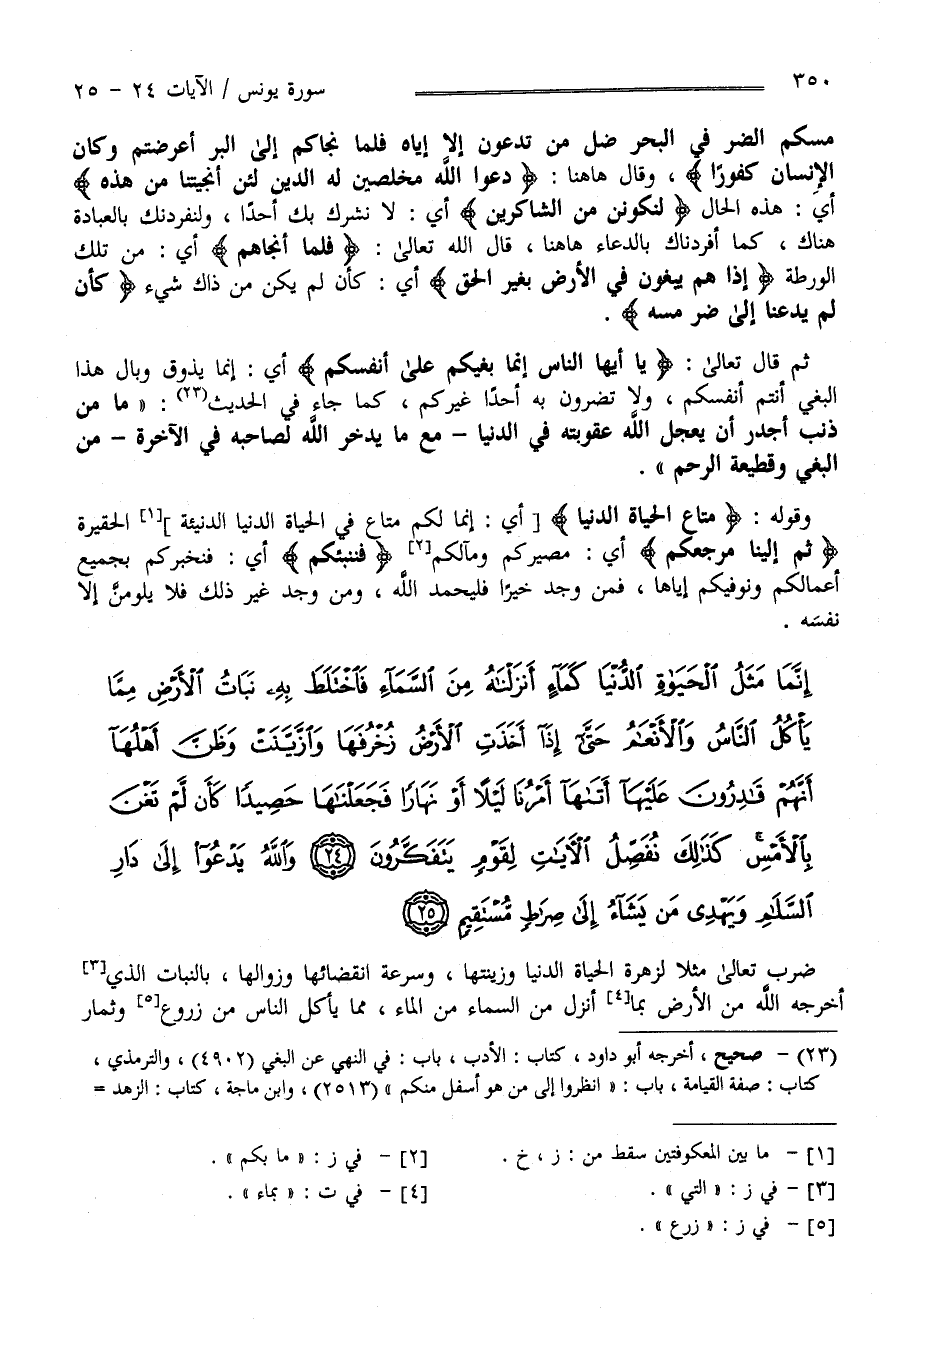 ٣٥٠ سورة يونس / الآيات ٢٤ - ٢٥
مسكم الضر في البحر ضل من تدعون إلا إياه فلما نجاكم إلى البر أعرضتم وكان
الإنسان كفورًا ﴾ ، وقال هاهنا : ﴿ دعوا اللَّه مخلصين له الدين لئن أنجيتنا من هذه ﴾
أي : هذه الحال ﴿ لنكونن من الشاكرين ﴾ أي : لا نشرك بك أحدًا ، ولنفردنك بالعبادة
هناك ، كما أفردناك بالدعاء هاهنا ، قال الله تعالىٰ : ﴿ فلما أنجاهم ﴾ أي : من تلك
الورطة ﴿ إذا هم يبغون في الأرض بغير الحق ﴾ أي : كأن لم يكن من ذاك شيء ﴿ كأن
لم يدعنا إلىٰ ضر مسه ﴾ .
ثم قال تعالىٰ : ﴿ يا أيها الناس إنما بغيكم علىٰ أنفسكم ﴾ أي : إنما يذوق وبال هذا
البغي أنتم أنفسكم ، ولا تضرون به أحدًا غيركم ، كما جاء في الحديث(٢٣) : « ما من
ذنب أجدر أن يعجل اللَّه عقوبته في الدنيا - مع ما يدخر اللَّه لصاحبه في الآخرة - من
البغي وقطيعة الرحم » .
وقوله : ﴿ متاع الحياة الدنيا ﴾ [ أي : إنما لكم متاع في الحياة الدنيا الدنيئة ][١] الحقيرة
﴿ ثم إلينا مرجعكم ﴾ أي : مصيركم ومآلكم[٢] ﴿ فننبئكم ﴾ أي : فنخبركم بجميع
أعمالكم ونوفيكم إياها ، فمن وجد خيرًا فليحمد اللَّه ، ومن وجد غير ذلك فلا يلومنَّ إلا
نفسَه .
إِنَّمَا مَثَلُ ٱلْحَيَوٰةِ ٱلدُّنْيَا كَمَآءٍ أَنزَلْنَٰهُ مِنَ ٱلسَّمَآءِ فَٱخْتَلَطَ بِهِۦ نَبَاتُ ٱلْأَرْضِ مِمَّا
يَأْكُلُ ٱلنَّاسُ وَٱلْأَنْعَٰمُ حَتَّىٰٓ إِذَآ أَخَذَتِ ٱلْأَرْضُ زُخْرُفَهَا وَٱزَّيَّنَتْ وَظَنَّ أَهْلُهَآ
أَنَّهُمْ قَٰدِرُونَ عَلَيْهَآ أَتَىٰهَآ أَمْرُنَا لَيْلًا أَوْ نَهَارًا فَجَعَلْنَٰهَا حَصِيدًا كَأَن لَّمْ تَغْنَ
بِٱلْأَمْسِ ۚ كَذَٰلِكَ نُفَصِّلُ ٱلْءَايَٰتِ لِقَوْمٍ يَتَفَكَّرُونَ ٢٤ وَٱللَّهُ يَدْعُوٓا۟ إِلَىٰ دَارِ
ٱلسَّلَٰمِ وَيَهْدِى مَن يَشَآءُ إِلَىٰ صِرَٰطٍ مُّسْتَقِيمٍ ٢٥
ضرب تعالىٰ مثلا لزهرة الحياة الدنيا وزينتها ، وسرعة انقضائها وزوالها ، بالنبات الذي[٣]
أخرجه اللَّه من الأرض بما[٤] أنزل من السماء من الماء ، مما يأكل الناس من زروع[٥] وثمار
(٢٣) - صحيح ، أخرجه أبو داود ، كتاب : الأدب ، باب : في النهي عن البغي (٤٩٠٢) ، والترمذي ،
كتاب : صفة القيامة ، باب : « انظروا إلى من هو أسفل منكم » (٢٥١٣) ، وابن ماجة ، كتاب : الزهد =
[١] - ما بين المعكوفتين سقط من : ز ، خ . [٢] - في ز : « ما بكم » .
[٣] - في ز : « التي » . [٤] - في ت : « بماء » .
[٥] - في ز : « زرع » .